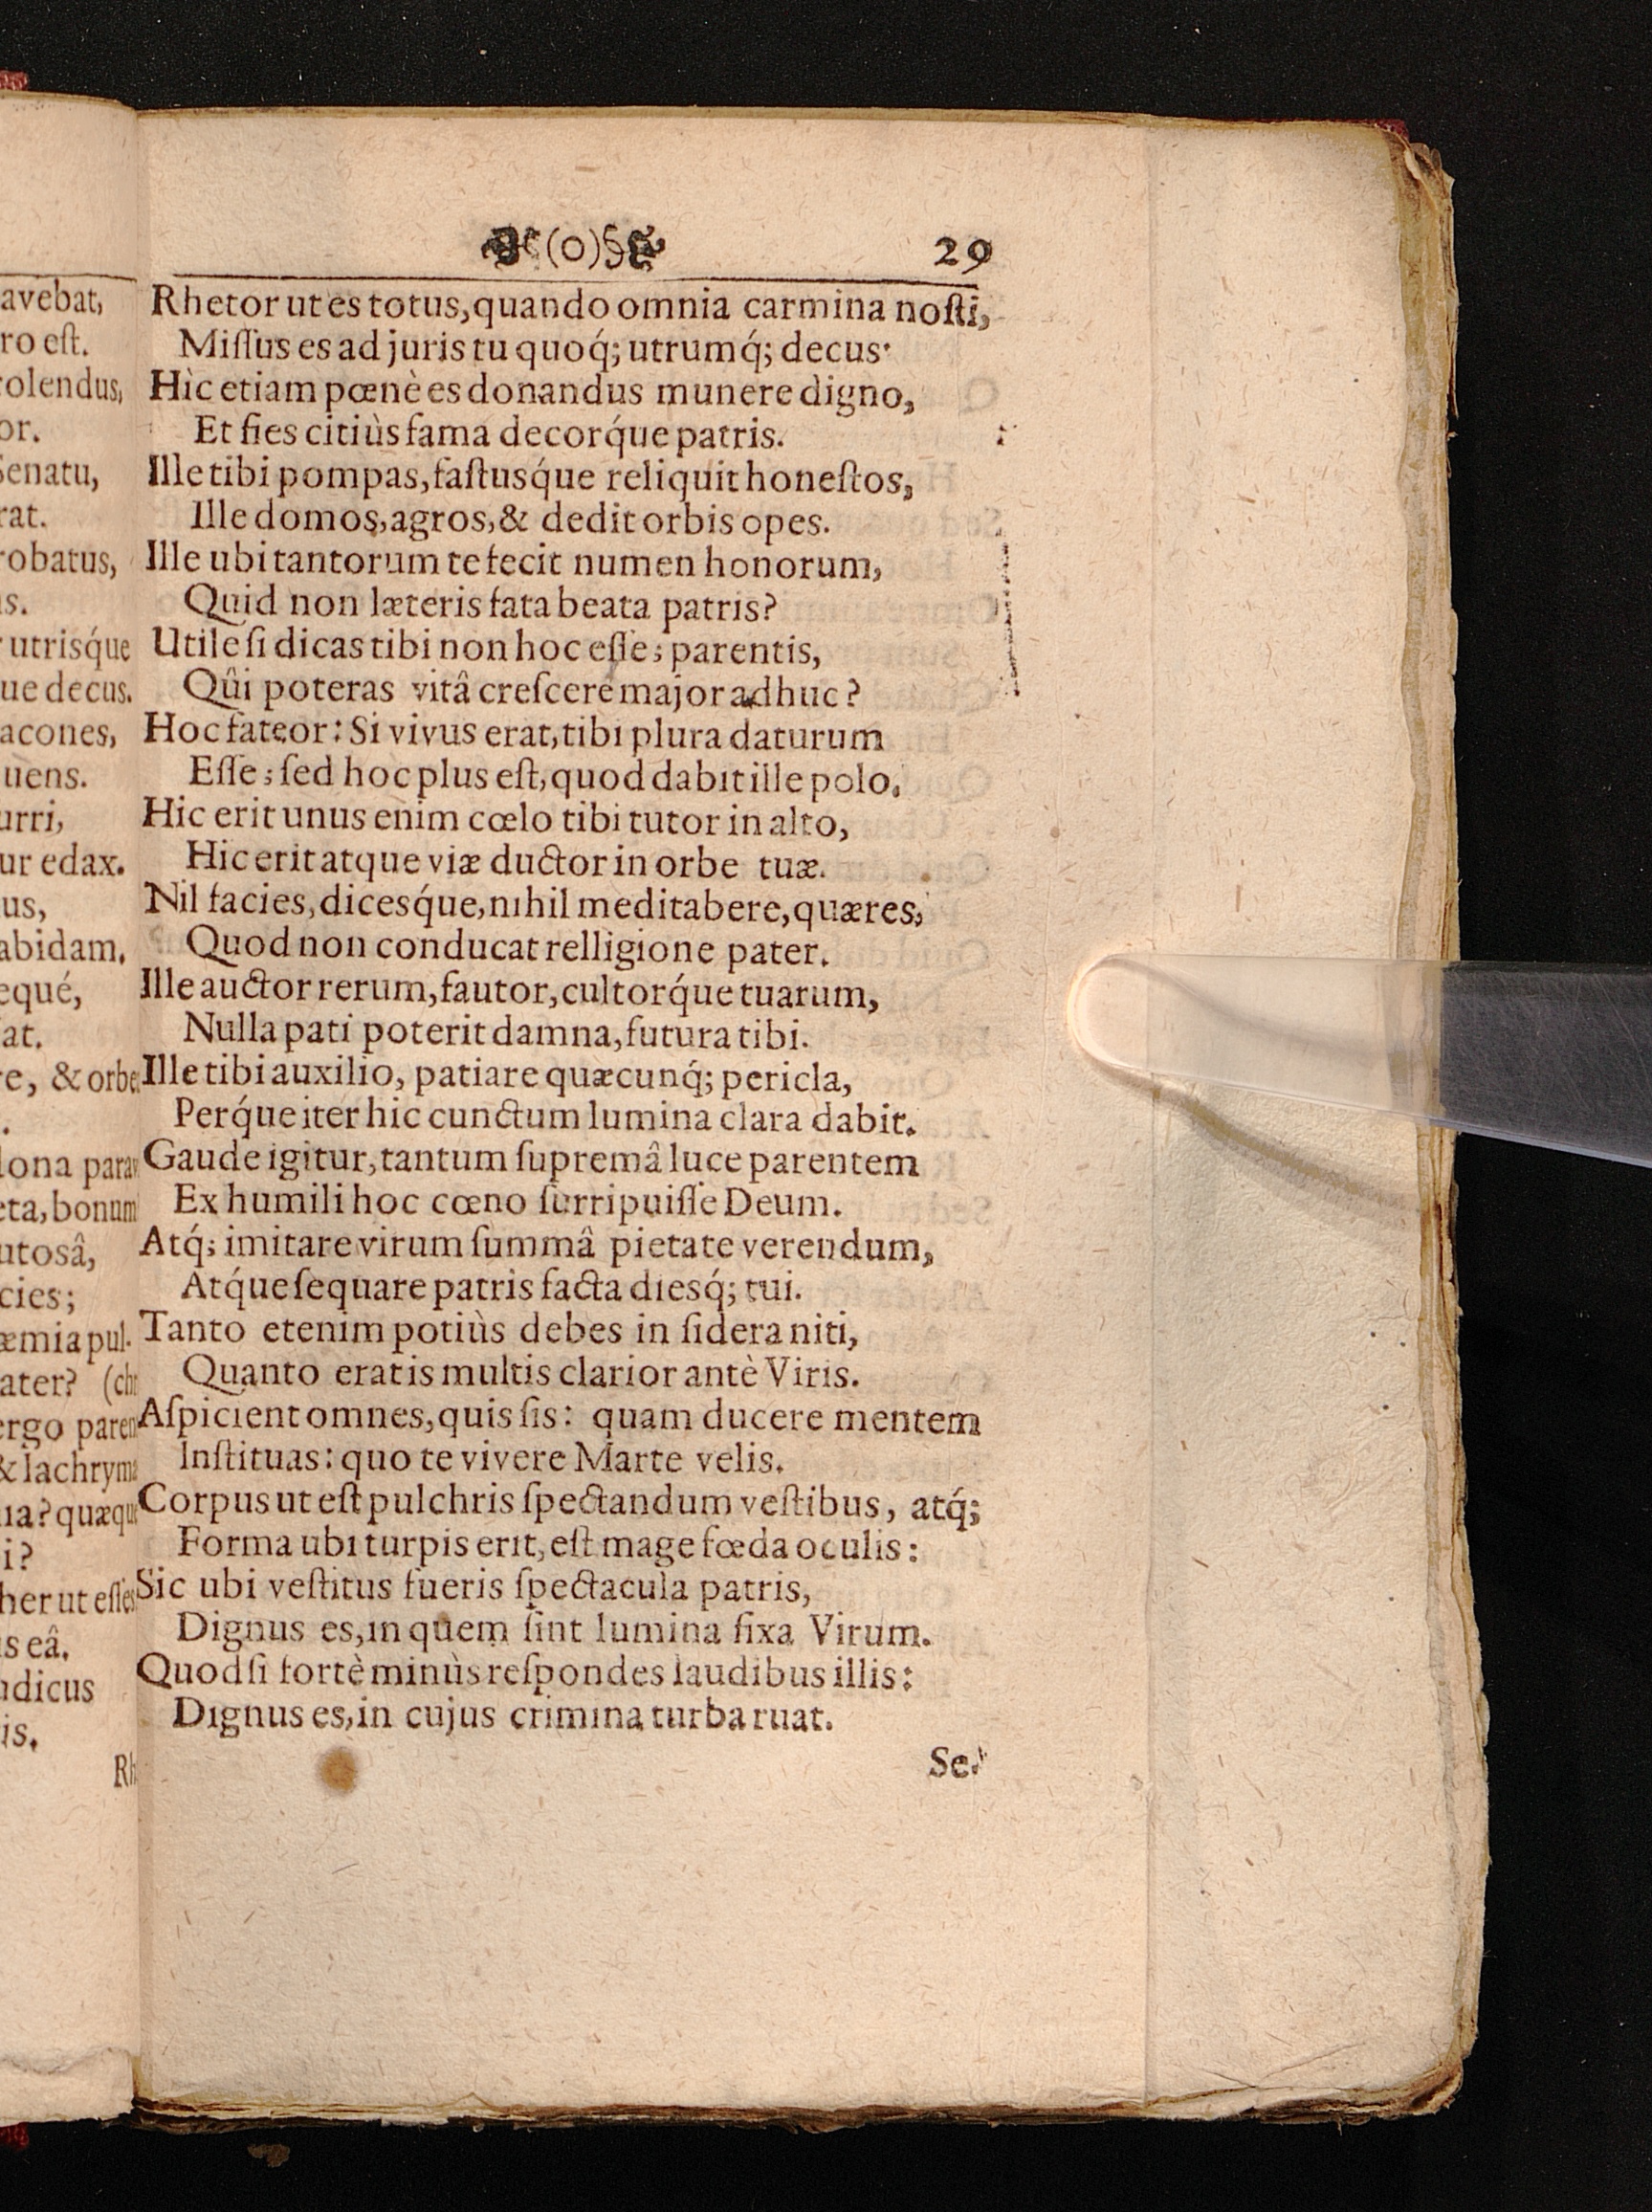 (o) 29
Rhetor ut es totus, quando omnia carmina noſti,
Miſſus es ad juris tu quoq́; utrumq́; decus.
Hìc etiam pœnè es donandus munere digno,
Et fies citiùs fama decorq́ue patris.
Ille tibi pompas, faſtusq́ue reliquit honeſtos,
Ille domos, agros, & dedit orbis opes.
Ille ubi tantorum te fecit numen honorum,
Quid non læteris fata beata patris?
Utile ſi dicas tibi non hoc eſſe; parentis,
Qûi poteras vitâ creſcere major adhuc?
Hoc fateor: Si vivus erat, tibi plura daturum
Eſſe; ſed hoc plus eſt, quod dabit ille polo.
Hic erit unus enim cœlo tibi tutor in alto,
Hic erit atque viæ ductor in orbe tuæ.
Nil facies, dicesq́ue, nihil meditabere, quæres,
Quod non conducat relligione pater.
Ille auctor rerum, fautor, cultorq́ue tuarum,
Nulla pati poterit damna, futura tibi.
Ille tibi auxilio, patiare quæcunq́; pericla,
Perq́ue iter hic cunctum lumina clara dabit.
Gaude igitur, tantum ſupremâ luce parentem
Ex humili hoc cœno ſurripuiſſe Deum.
Atq́; imitare virum ſummâ pietate verendum,
Atq́ue ſequare patris facta diesq́; tui.
Tanto etenim potiùs debes in ſidera niti,
Quanto eratis multis clarior antè Viris.
Aſpicient omnes, quis ſis: quam ducere mentem
Inſtituas: quo te vivere Marte velis.
Corpus ut eſt pulchris ſpectandum veſtibus, atq́;
Forma ubi turpis erit, eſt mage fœda oculis:
Sic ubi veſtitus fueris ſpectacula patris,
Dignus es, in quem ſint lumina fixa Virum.
Quod ſi fortè minùs reſpondes laudibus illis:
Dignus es, in cujus crimina turba ruat.